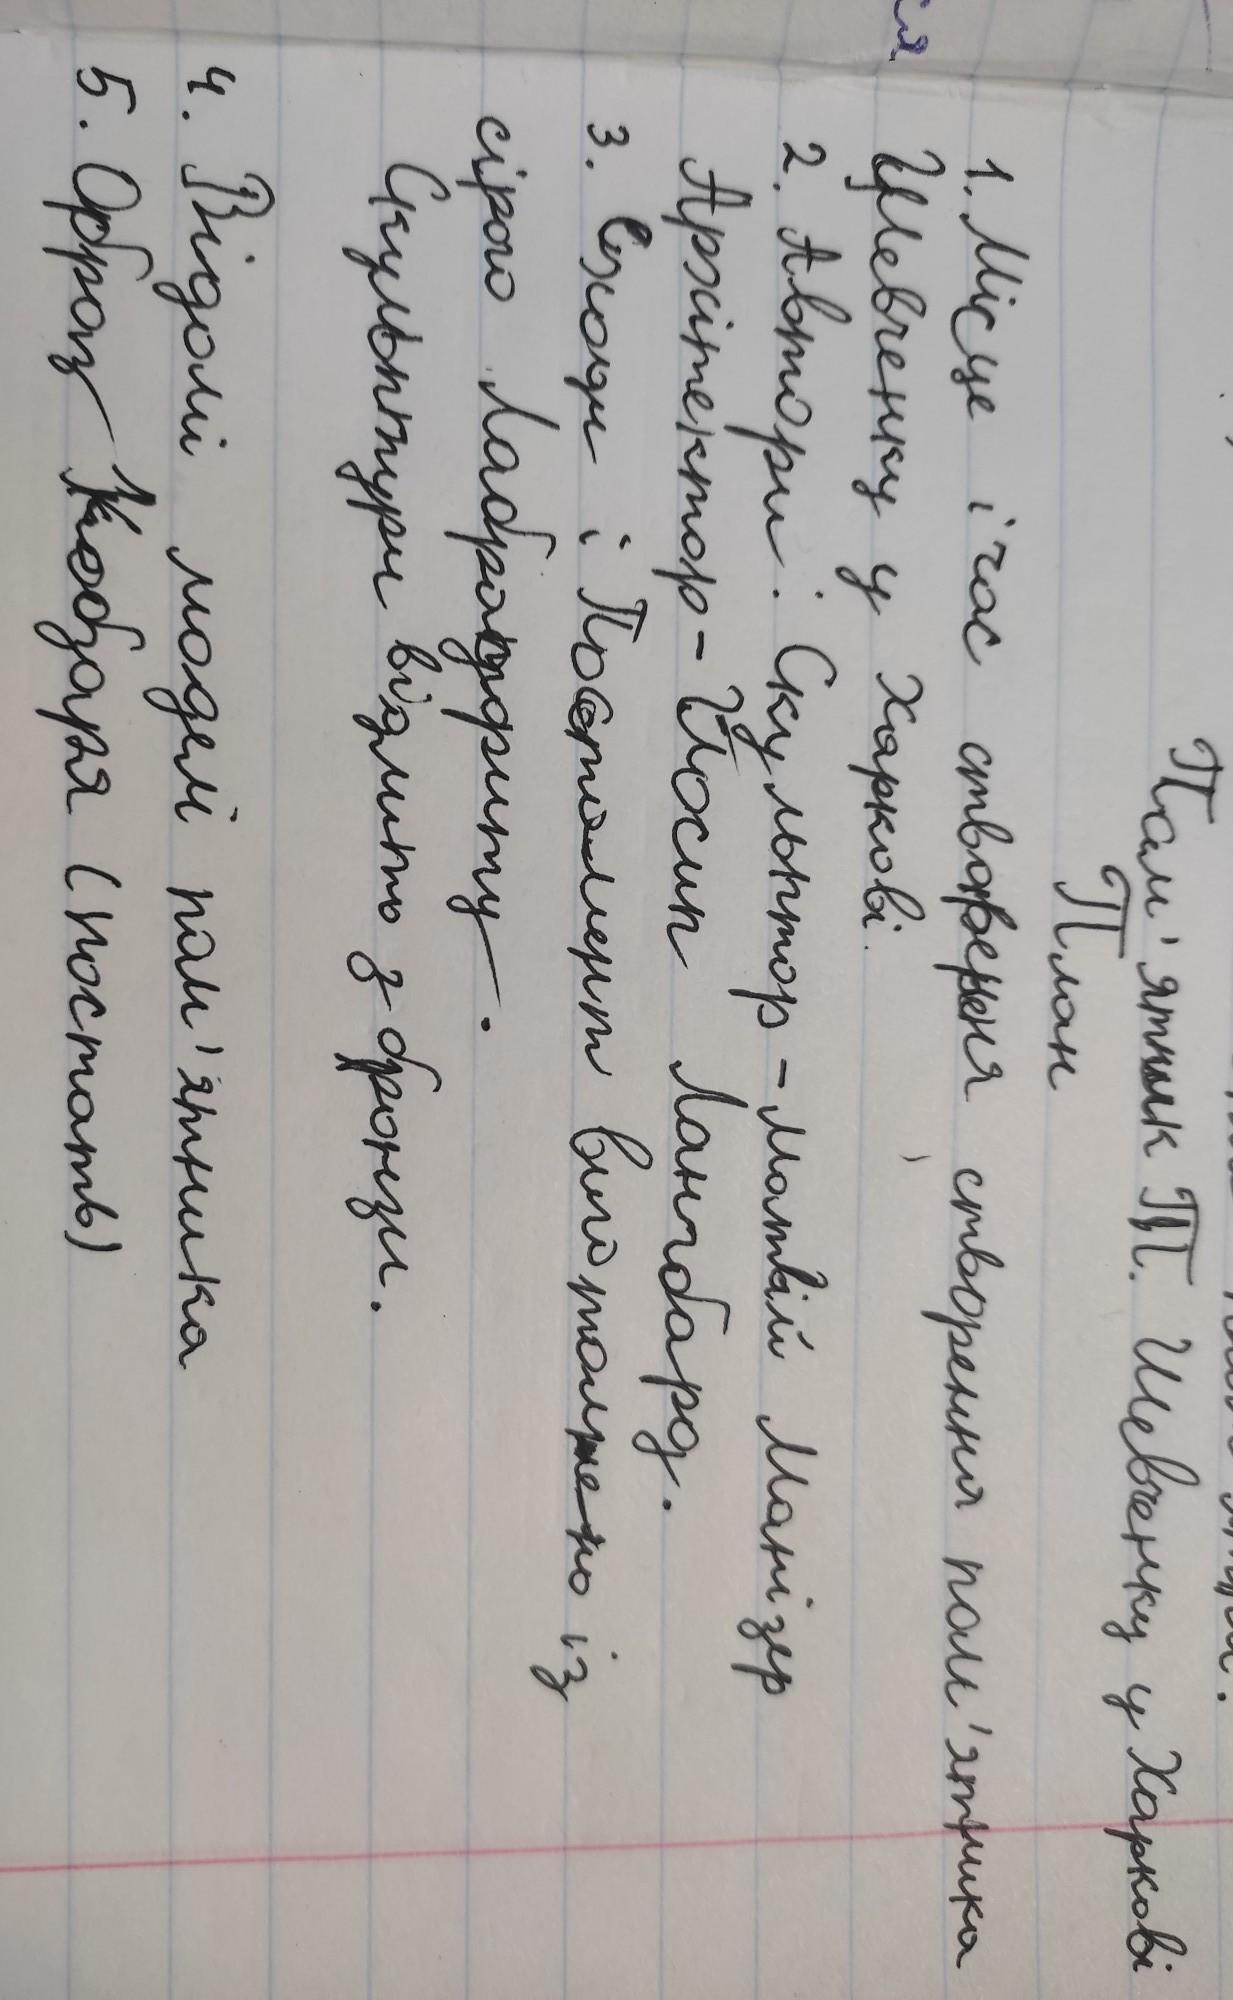 Пам'ятник Т. Шевченку у Харкові
План
1. Місце і час створення створення пам'ятника
Шевченку у Харкові.
2. Автори: Скульптор - Матвій Манізер
Архітектор - Йосип Лангбард.
3. Сходи і Постамент виготовлено із
сірого Лабрадориту.
Скульптури відлито з бронзи.
4. Відомі моделі пам'ятника
5. Образ Кобзаря (постать)